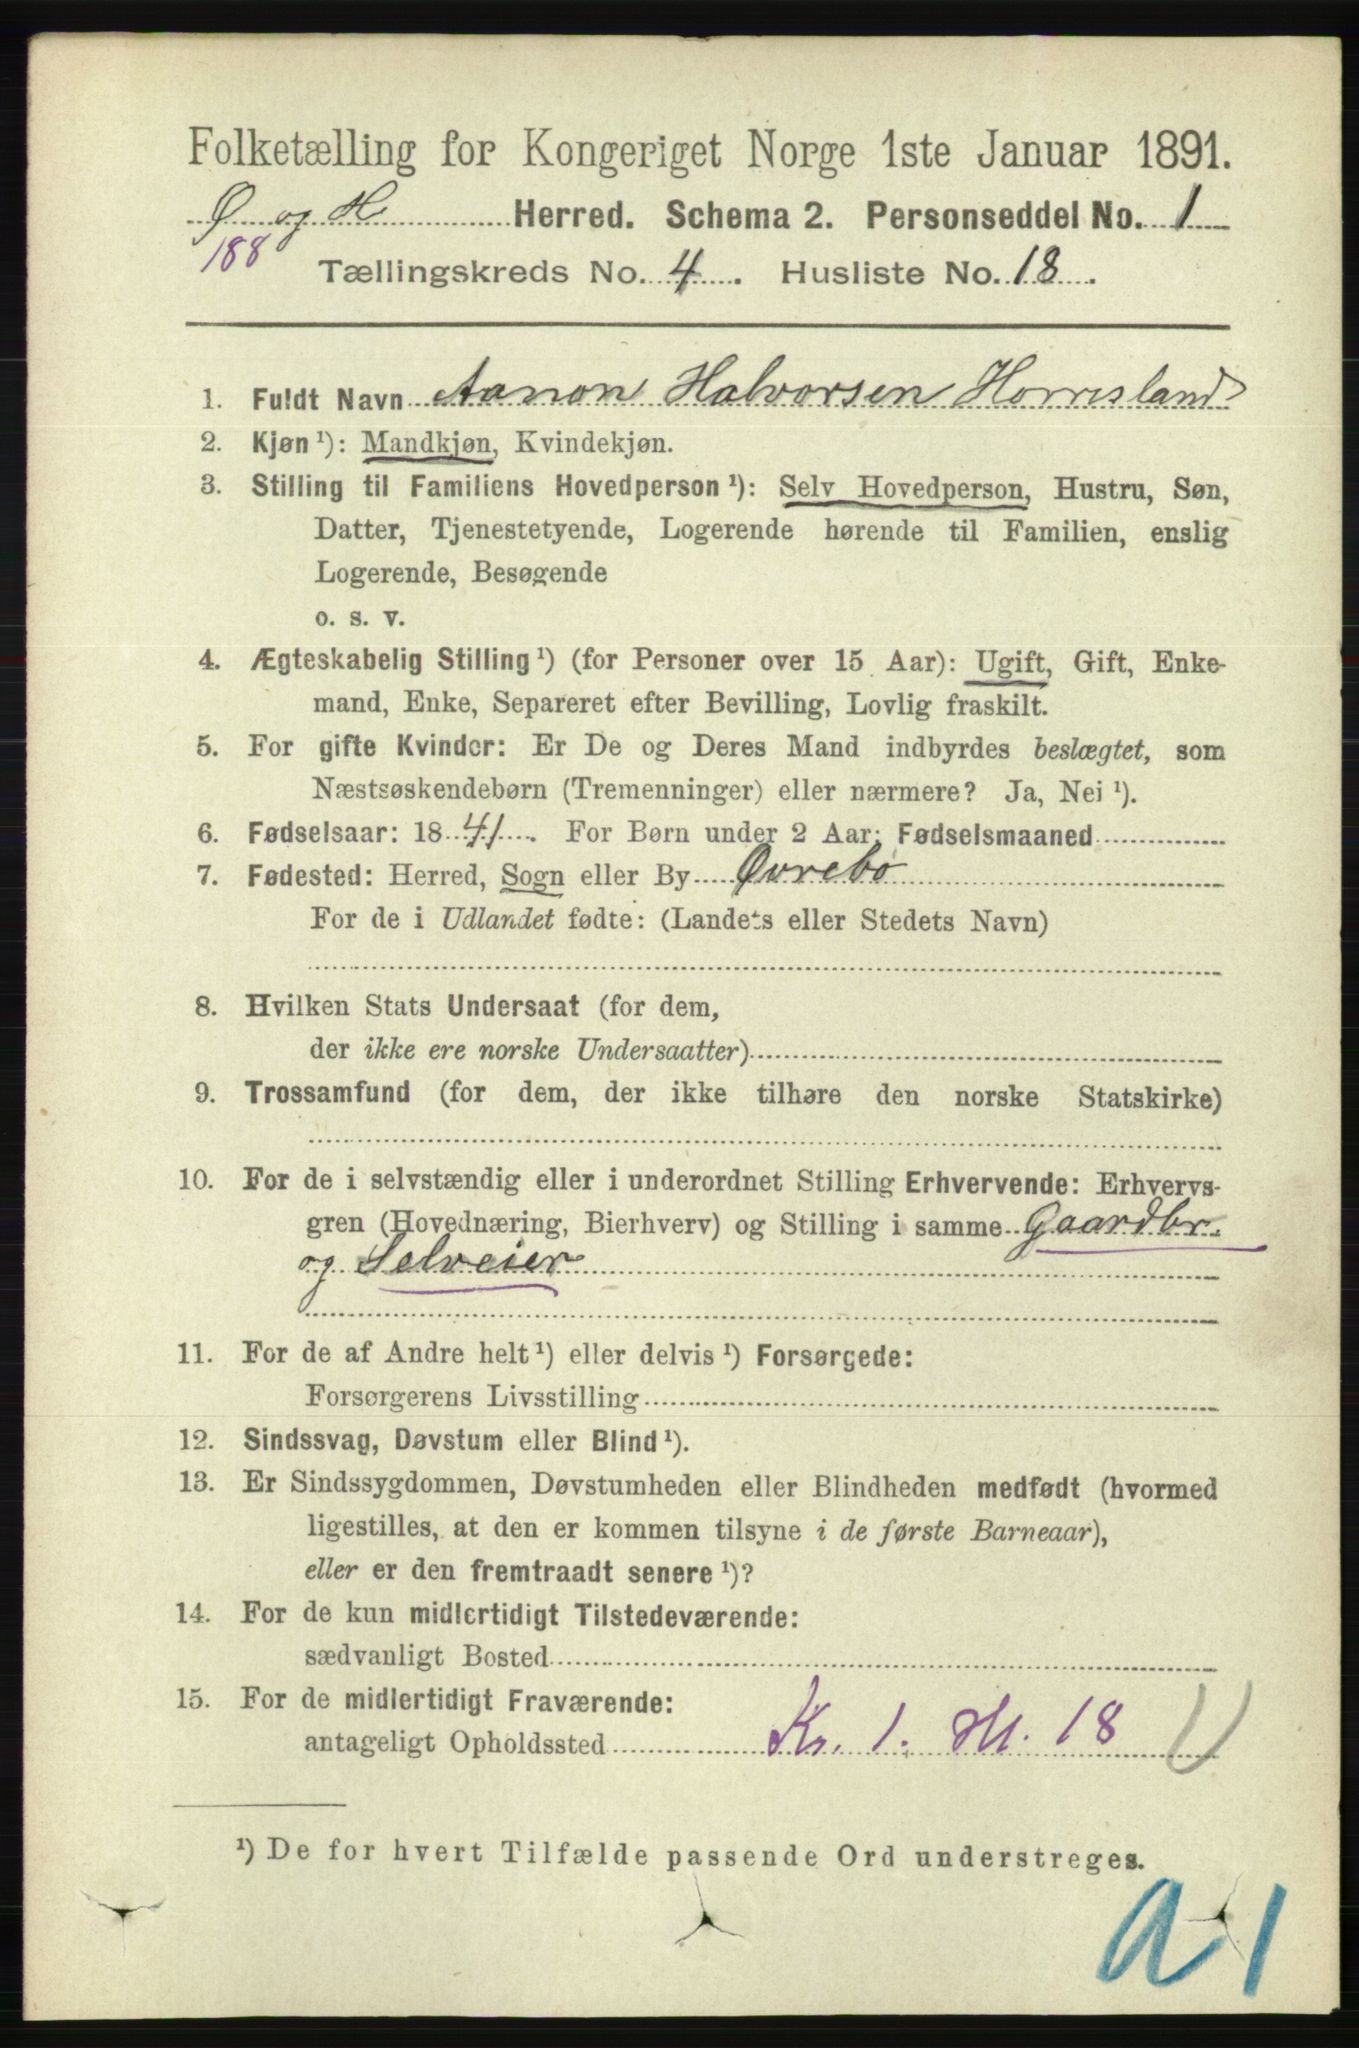 Folketælling for Kongeriget Norge 1ste Januar 1891.
Ø og H Herred. Schema 2. Personseddel No. 1
188
Tællingskreds No. 4. Husliste No. 18.
1. Fuldt Navn Aanon Halvorsen Horrisland
2. Kjøn ¹): Mandkjøn, Kvindekjøn.
3. Stilling til Familiens Hovedperson ¹): Selv Hovedperson, Hustru, Søn,
Datter, Tjenestetyende, Logerende hørende til Familien, enslig
Logerende, Besøgende
o. s. v.
4. Ægteskabelig Stilling ¹) (for Personer over 15 Aar): Ugift, Gift, Enke-
mand, Enke, Separeret efter Bevilling, Lovlig fraskilt.
5. For gifte Kvinder: Er De og Deres Mand indbyrdes beslægtet, som
Næstsøskendebørn (Tremenninger) eller nærmere? Ja, Nei ¹).
6. Fødselsaar: 1841. For Børn under 2 Aar: Fødselsmaaned
7. Fødested: Herred, Sogn eller By Øvrebø
For de i Udlandet fødte: (Landets eller Stedets Navn)
8. Hvilken Stats Undersaat (for dem,
der ikke ere norske Undersaatter)
9. Trossamfund (for dem, der ikke tilhøre den norske Statskirke)
10. For de i selvstændig eller i underordnet Stilling Erhvervende: Erhvervs-
gren (Hovednæring, Bierhverv) og Stilling i samme Gaardbr.
og Selveier
11. For de af Andre helt ¹) eller delvis ¹) Forsørgede:
Forsørgerens Livsstilling
12. Sindssvag, Døvstum eller Blind ¹).
13. Er Sindssygdommen, Døvstumheden eller Blindheden medfødt (hvormed
ligestilles, at den er kommen tilsyne i de første Barneaar),
eller er den fremtraadt senere ¹)?
14. For de kun midlertidigt Tilstedeværende:
sædvanligt Bosted
15. For de midlertidigt Fraværende:
antageligt Opholdssted Kr. 1. Hl. 18 U
¹) De for hvert Tilfælde passende Ord understreges.
a 1